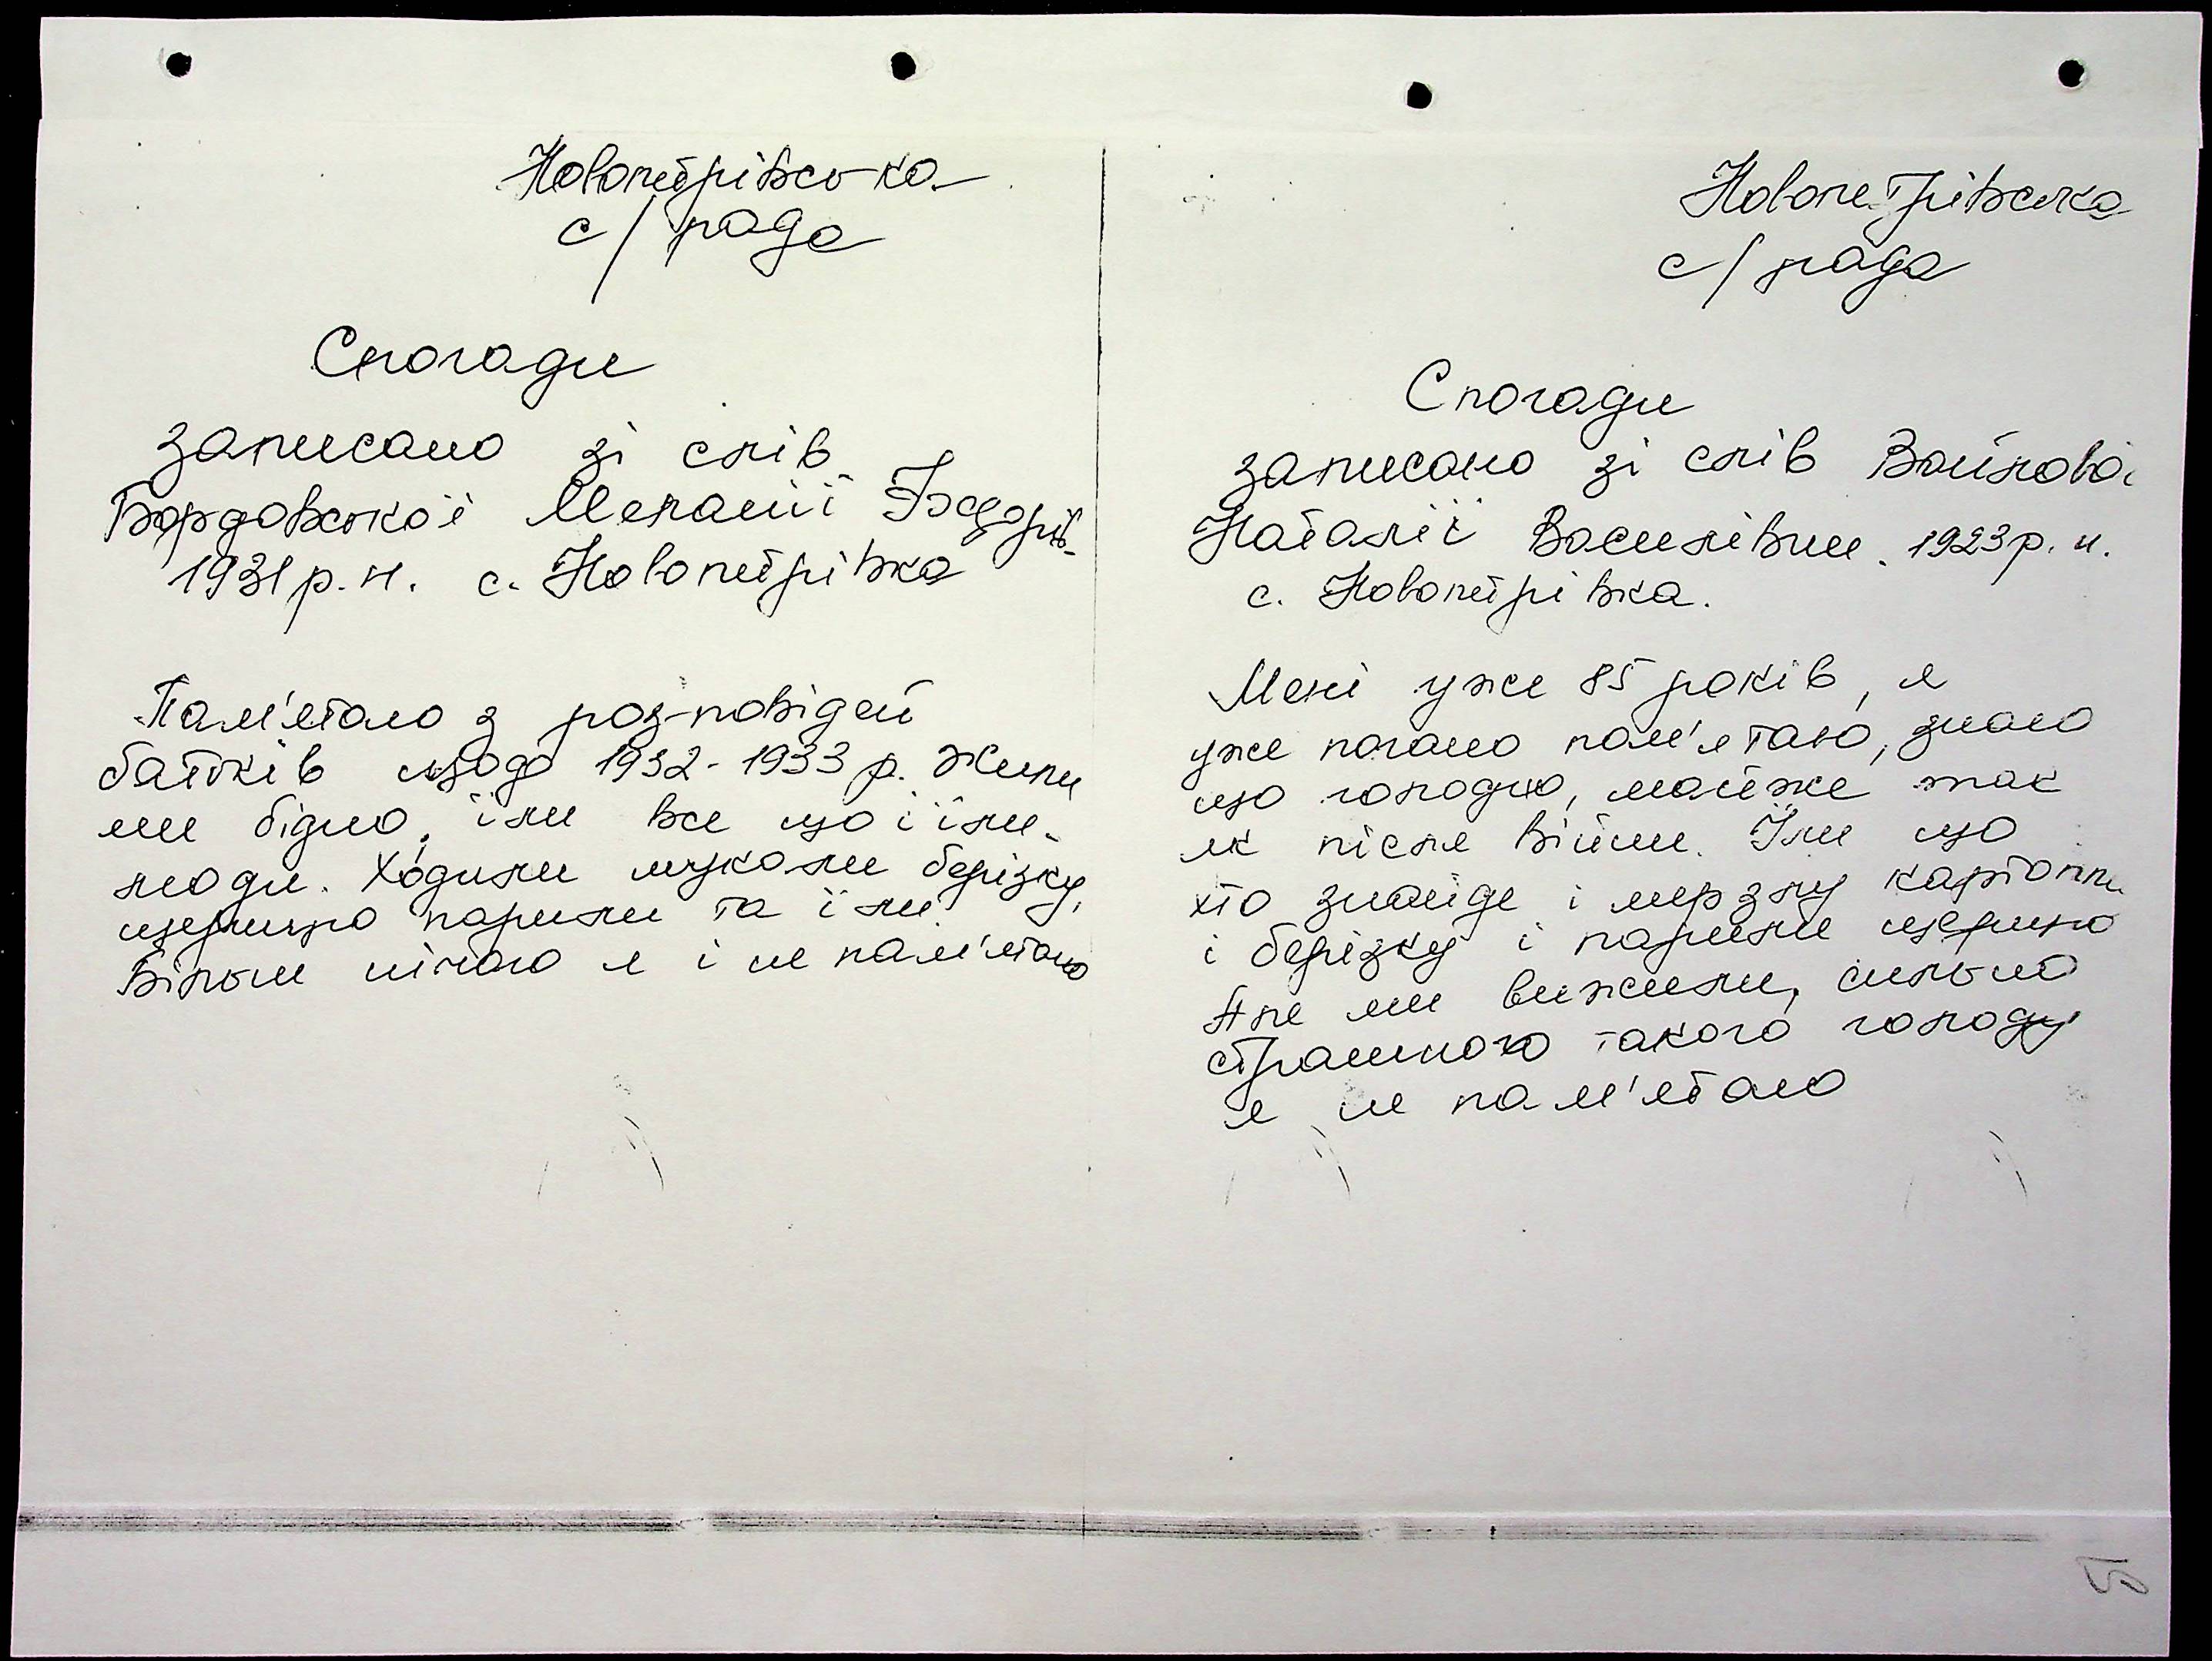 Новопетрівська
с/рада
Спогади
записано зі слів
Бордовської Меланії Федорів-
1931 р.н. с. Новопетрівка
Пам'ятаю з роз-повідей
батьків щодо 1932-1933 р. Жили
ми бідно, їли все що і їли
люди. Ходили шукали берізку,
щерицю парили та їли.
Більш нічого я і не пам'ятаю
Новопетрівська
с/рада
Спогади
записано зі слів
Наталії Василівни. 1923 р. н.
с. Новопетрівка.
Мені уже 85 років, я
уже погано пам'ятаю, знаю
що голодно, майже так
як після війни. Їли що
хто знайде і мерзлу картоплю
і берізку і парили щерицю
Але ми вижили, сильно
страшного такого голоду
я не пам'ятаю
5